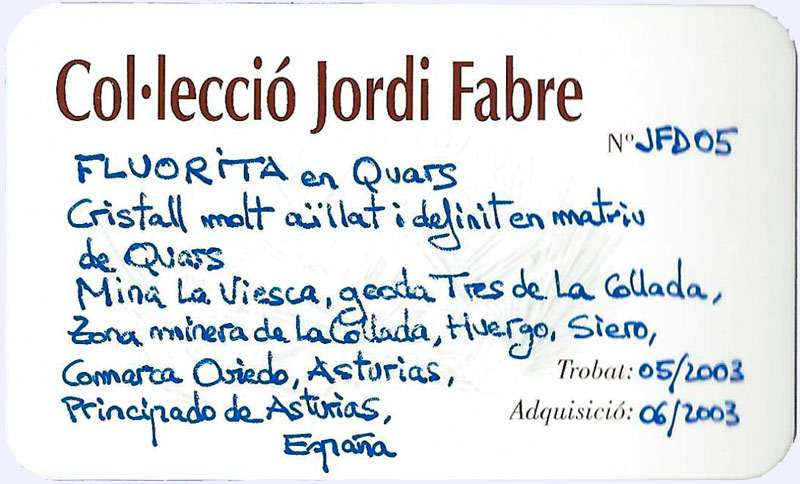 Col·lecció Jordi Fabre
Nº JFD05
FLUORITA en Quars
Cristall molt aïllat i definit en matriu
de Quars
Mina La Viesca, geoda Tres de La Collada,
Zona minera de La Collada, Huergo, Siero,
Comarca Oviedo, Asturias,
Trobat: 05/2003
Principado de Asturias,
Adquisició: 06/2003
España